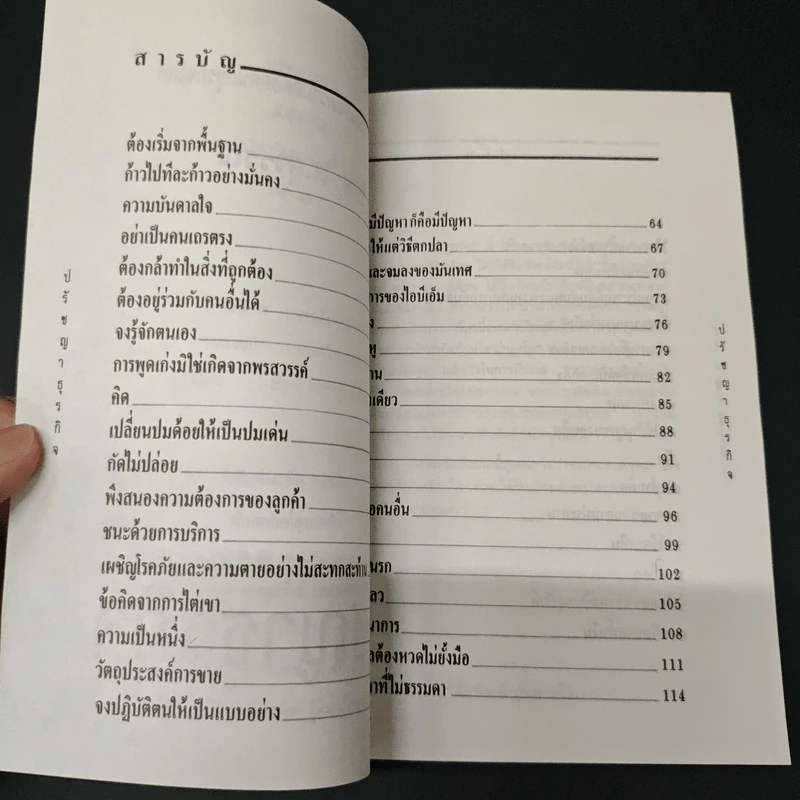 สารบัญ
ต้องเริ่มจากพื้นฐาน
ก้าวไปทีละก้าวอย่างมั่นคง
ความบันดาลใจ
อย่าเป็นคนเถรตรง
ต้องกล้าทำในสิ่งที่ถูกต้อง
ต้องอยู่ร่วมกับคนอื่นได้
จงรู้จักตนเอง
การพูดเก่งมิใช่เกิดจากพรสวรรค์
คิด
เปลี่ยนปมด้อยให้เป็นปมเด่น
กัดไม่ปล่อย
พึงสนองความต้องการของลูกค้า
ชนะด้วยการบริการ
เผชิญโรคภัยและความตายอย่างไม่สะทกสะท้าน
ข้อคิดจากการไต่เขา
ความเป็นหนึ่ง
วัตถุประสงค์การขาย
จงปฏิบัติตนให้เป็นแบบอย่าง
ปรัชญาธุรกิจ
มีปัญหา ก็คือมีปัญหา 64
ให้แต่วิธีตกปลา 67
และจมลงของมันเทศ 70
การของไอบีเอ็ม 73
76
79
82
เดียว 85
88
91
94
คนอื่น 96
99
นรก 102
105
นาการ 108
ต้องหวดไม่ยั้งมือ 111
ที่ไม่ธรรมดา 114
ปรัชญาธุรกิจ